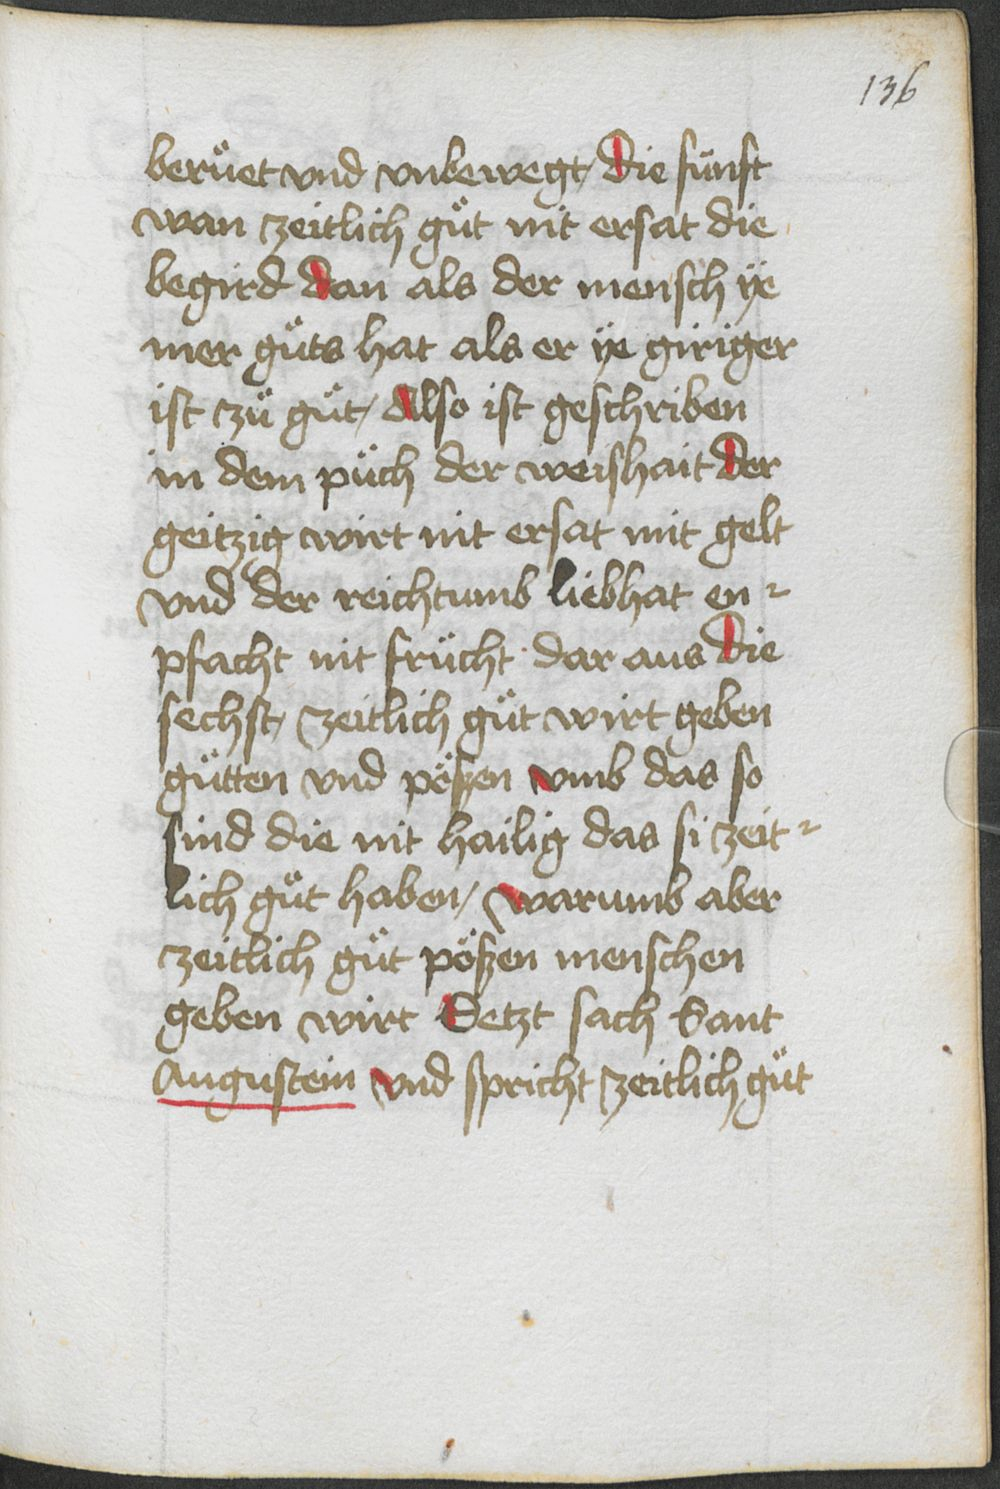 136
berüet vnd vnbewegt / die fünft
wan zeitlich güt nit ersat die
begird dan als der mensch ÿe
mer güts hat als er ÿe giriger
ist zü güt / Also ist geschriben
in dem püch der weishait der
geitzig wirt nit ersat mit gelt
vnd der reichtumb liebhat en-
pfacht nit frücht dar aus Die
sechst / zeitlich güt wirt geben
gütten vnd pößen vmb das so
sind die nit hailig das si zeit-
lich güt haben / warumb aber
zeitlich güt pößen menschen
geben wirt Setzt sach Sant
Augustein vnd spricht zeitlich güt